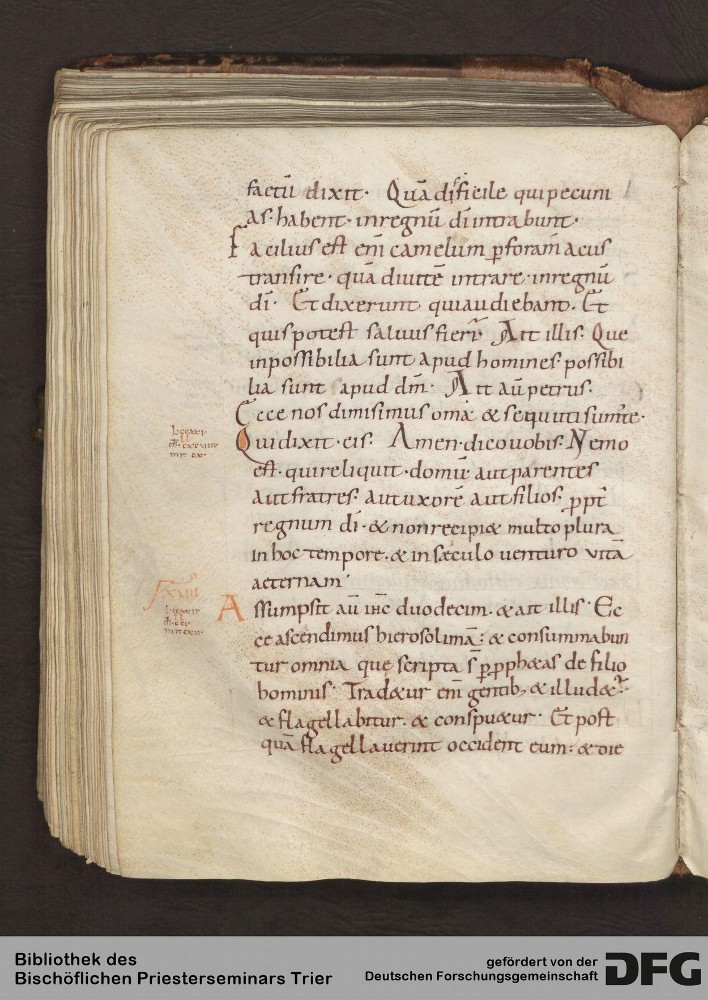 factū dixit. Quā difficile qui pecuni
as habent. in regnū dī intrabunt.
Facilius est enī camelum p foram̄ acus
transire. quā divitē intrare in regnū
dī. Et dixerunt qui audiebant. Et
quis potest salvus fieri. Ait illis. Que
inpossibilia sunt apud homines possibi
lia sunt apud dm̄. Ait aū petrus.
Ecce nos dimisimus omā & secuti sum' te.
Qui dixit eis. Amen dico vobis. Nemo
est. qui reliquit domū aut parentes
aut fratres. aut uxorē aut filios. ppt̄
regnum dī. & non recipi& multo plura
in hoc tempore. & in sæculo venturo vitā
aeternam.
Assumpsit aū ihc duodecim. & ait illis. Ec
ce ascendimus hierosolimā: & consummabun
tur omnia que scripta s̄ p pph&as de filio
hominis. Trad&ur enī gentib; & illud&ur
& flagellabitur. & conspu&ur. Et post
quā flagellaverint occident eum: & die
Bibliothek des
Bischöflichen Priesterseminars Trier
gefördert von der
Deutschen Forschungsgemeinschaft
DFG